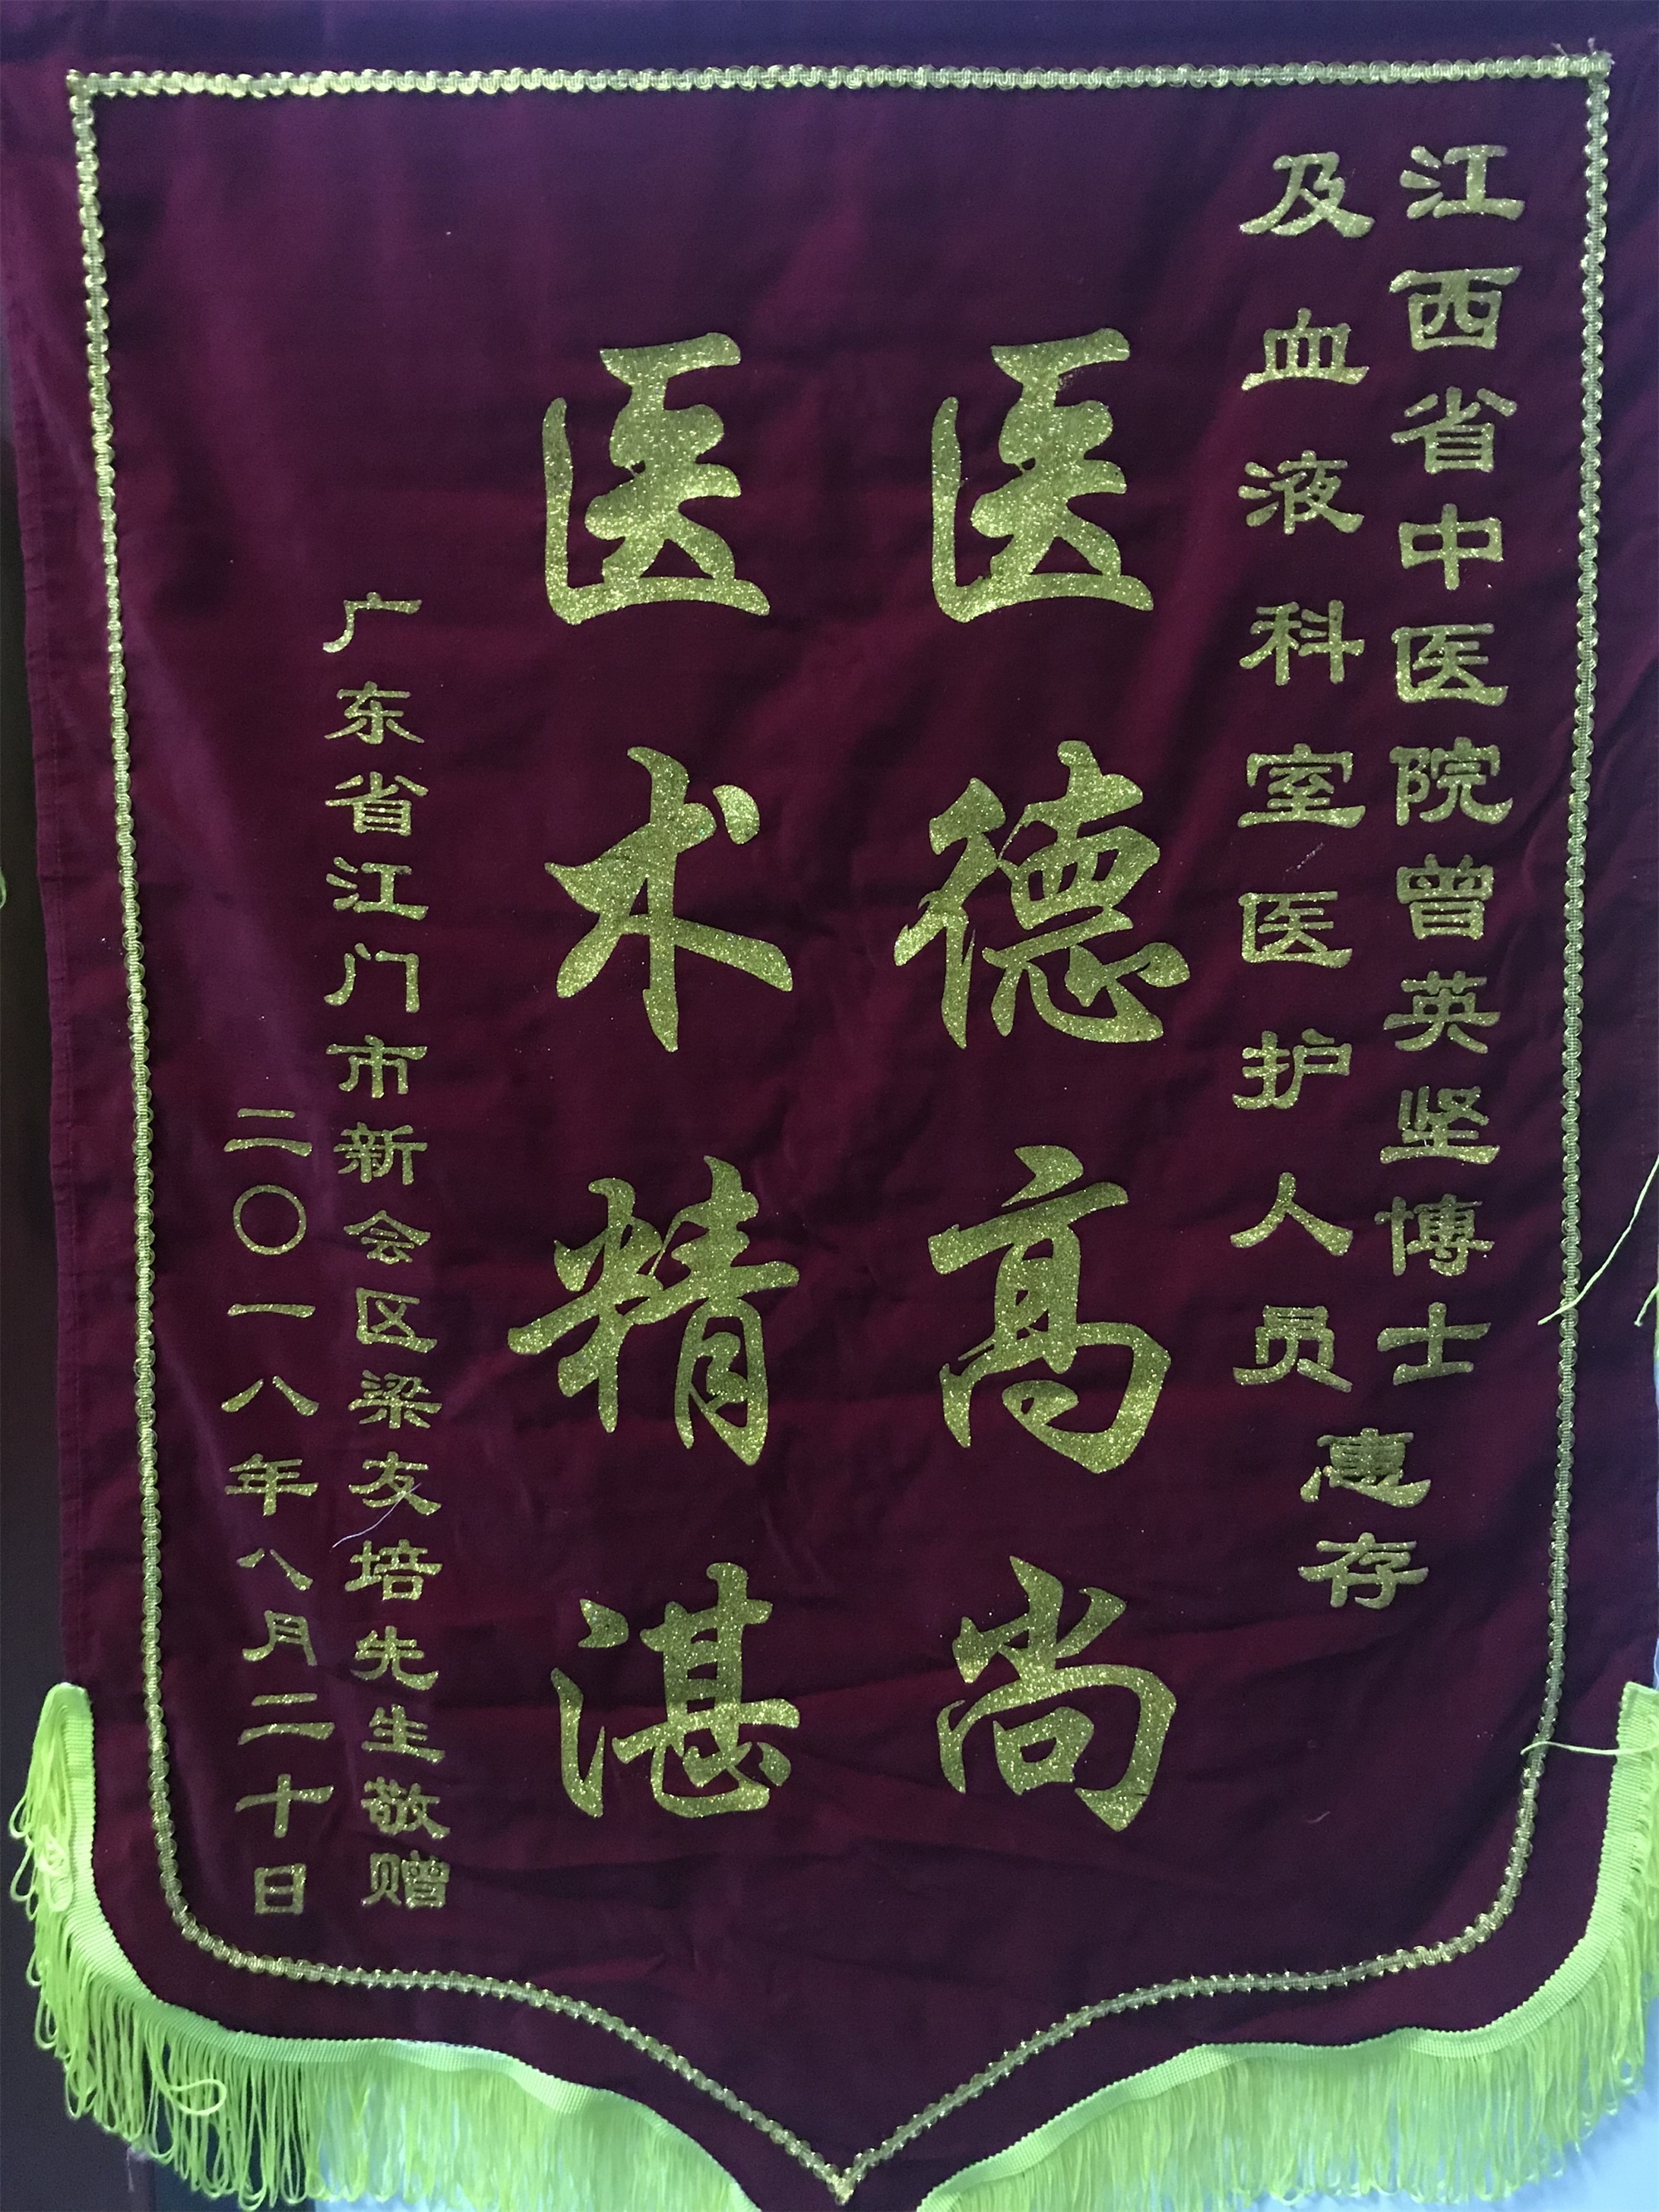 江西省中医院曾英坚博士
及血液科室医护人员
惠存
医德高尚
医术精湛
广东省江门市新会区梁友培先生敬赠
二〇一八年八月二十日